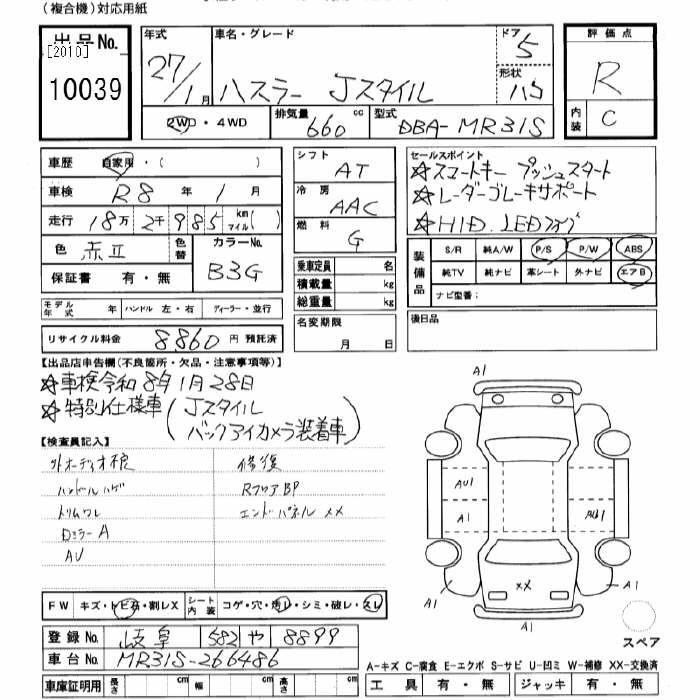 (複合機)対応用紙
出品No.
[2010]
10039
年式 27/1月
車名・グレード
ハスラー Jスタイル
ドア 5
形状 ハコ
評価点 R
内装 C
2WD・4WD
排気量 660 cc
型式 DBA-MR31S
車歴 自家用・( )
車検 R8年1月
走行 18万2千985 km マイル( )
色 赤II
色替
カラーNo. B3G
保証書 有・無
モデル年式 年
ハンドル 左・右
ディーラー・並行
リサイクル料金 8860円 預託済
シフト AT
冷房 AAC
燃料 G
乗車定員 名
積載量 kg
総重量 kg
名変期限 月 日
セールスポイント
☆スマートキー プッシュスタート
☆レーダーブレーキサポート
☆HID. LEDフォグ
装備品
S/R 純A/W P/S P/W ABS
純TV 純ナビ 革シート 外ナビ エアB
ナビ型番:
後日品
【出品店申告欄(不良箇所・欠品・注意事項等)】
☆車検令和8年1月28日
☆特別仕様車(Jスタイル
バックアイカメラ装着車)
【検査員記入】
外オーディオ根 修復
ハンドルハゲ RフロアBP
トリムワレ エンドパネルXX
DミラーA
AU
FW キズ・トビ石・割レX
シート内装 コゲ・穴・汚レ・シミ・破レ・スレ
登録No. 岐阜 582 や 8899
車台No. MR31S-266486
車庫証明用 長さ cm 幅 cm 高さ cm
A1
AU1
A1
AU1
XX
A1
A1
A1
スペア
A-キズ C-腐食 E-エクボ S-サビ U-凹ミ W-補修 XX-交換済
工具 有・無 ジャッキ 有・無